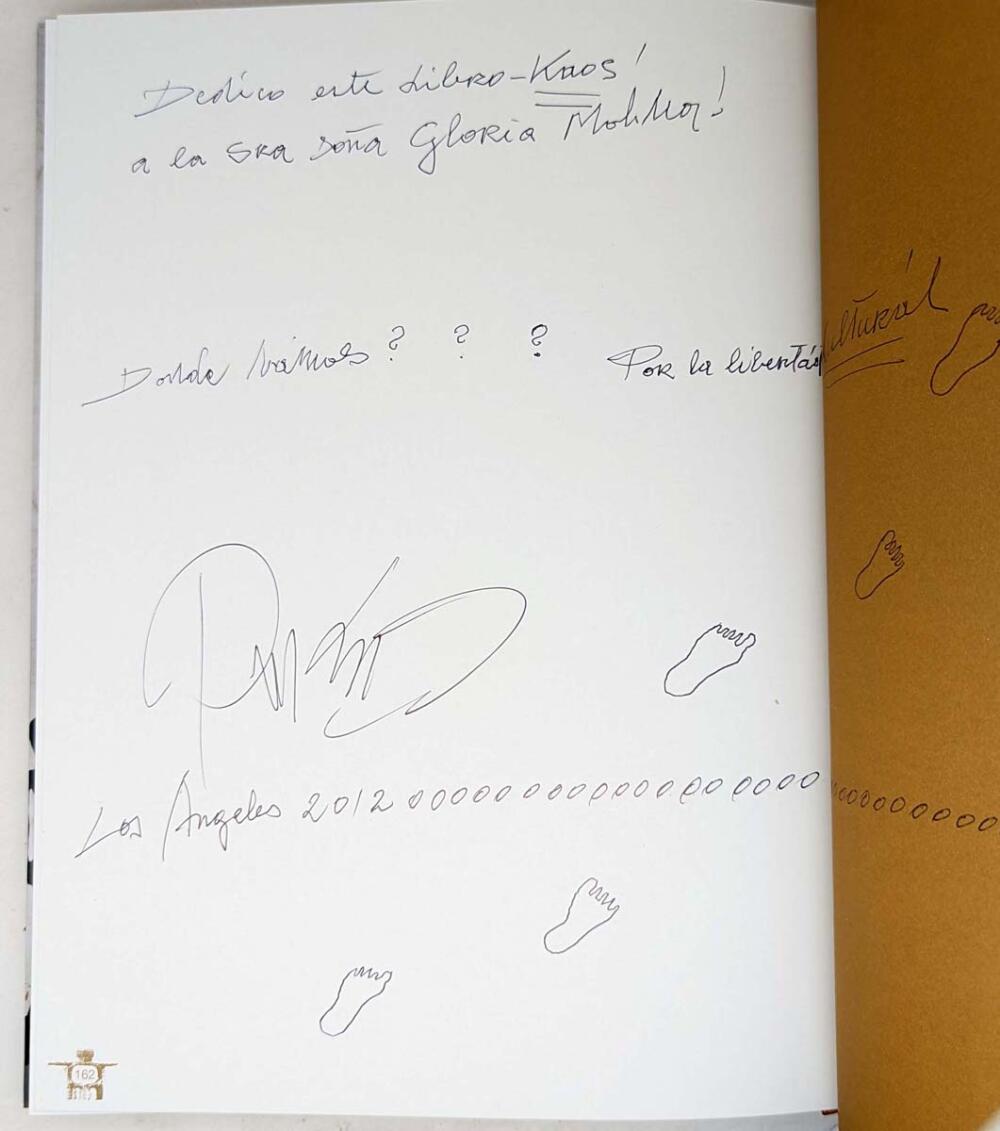 Dedico este Libro-Kaos!
a la SRA Doña GloRia Molina!
Donde vamos ? ? ? PoR la libertád cultural
Los Ángeles 2012 ooooooooooooooooooooooooooooo
162